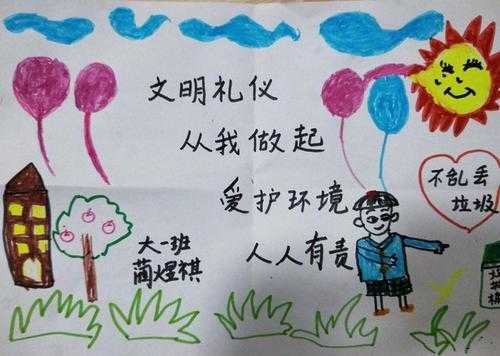 文明礼仪
从我做起
爱护环境
人人有责
不乱丢
垃圾
大一班